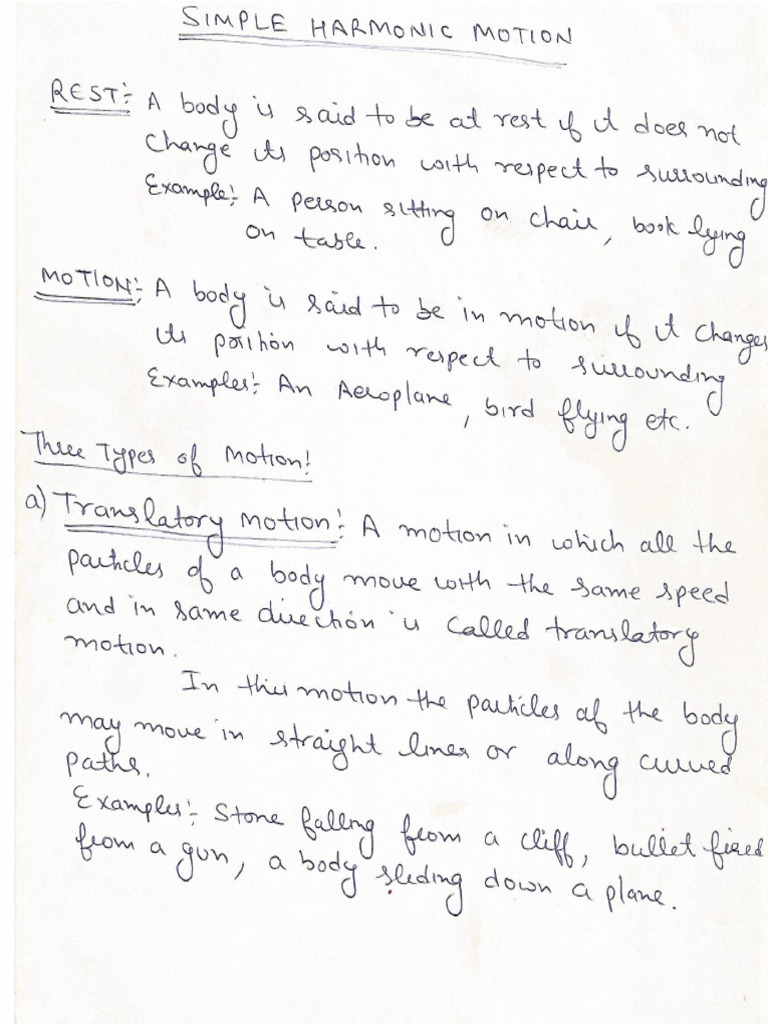 SIMPLE HARMONIC MOTION
REST:- A body is said to be at rest if it does not
change its position with respect to surrounding
Example:- A person sitting on chair, book lying
on table.
MOTION:- A body is said to be in motion if it changes
its position with respect to surrounding
Examples:- An Aeroplane, bird flying etc.
Three Types of Motion:
a) Translatory motion:- A motion in which all the
particles of a body move with the same speed
and in same direction is called translatory
motion.
In this motion the particles of the body
may move in straight lines or along curved
paths.
Examples:- Stone falling from a cliff, bullet fired
from a gun, a body sliding down a plane.